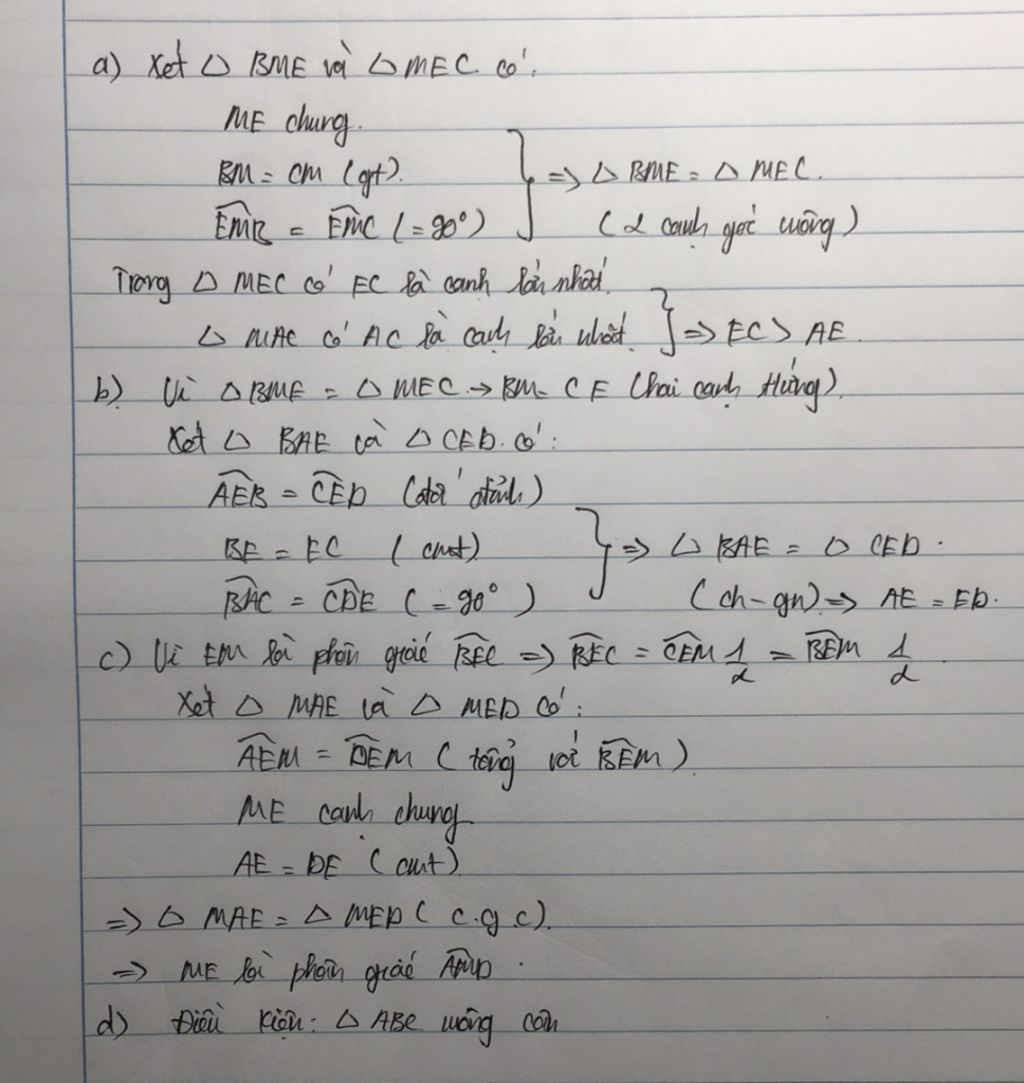 a) Xét △ BME và △ MEC có:
ME chung.
BM = CM (gt). => △ BME = △ MEC.
EMB = EMC (= 90°) (2 cạnh góc vuông)
Trong △ MEC có EC là cạnh lớn nhất.
△ MAC có AC là cạnh lớn nhất. => EC > AE.
b) Vì △ BME = △ MEC → BM = CE (hai cạnh tứng).
Xét △ BAE và △ CED có:
AEB = CED (đối đỉnh)
BE = EC (cmt) => △ BAE = △ CED.
BAC = CDE (= 90°) (ch - gn) => AE = ED.
c) Vì EM là phân giác BEC => BEC = CEM 1/2 = BEM 1/2.
Xét △ MAE và △ MED có:
AEM = DEM (tổng với BEM)
ME cạnh chung
AE = DE (cmt)
=> △ MAE = △ MED (c.g.c).
=> ME là phân giác AMD.
d) Điều kiện: △ ABC vuông cân